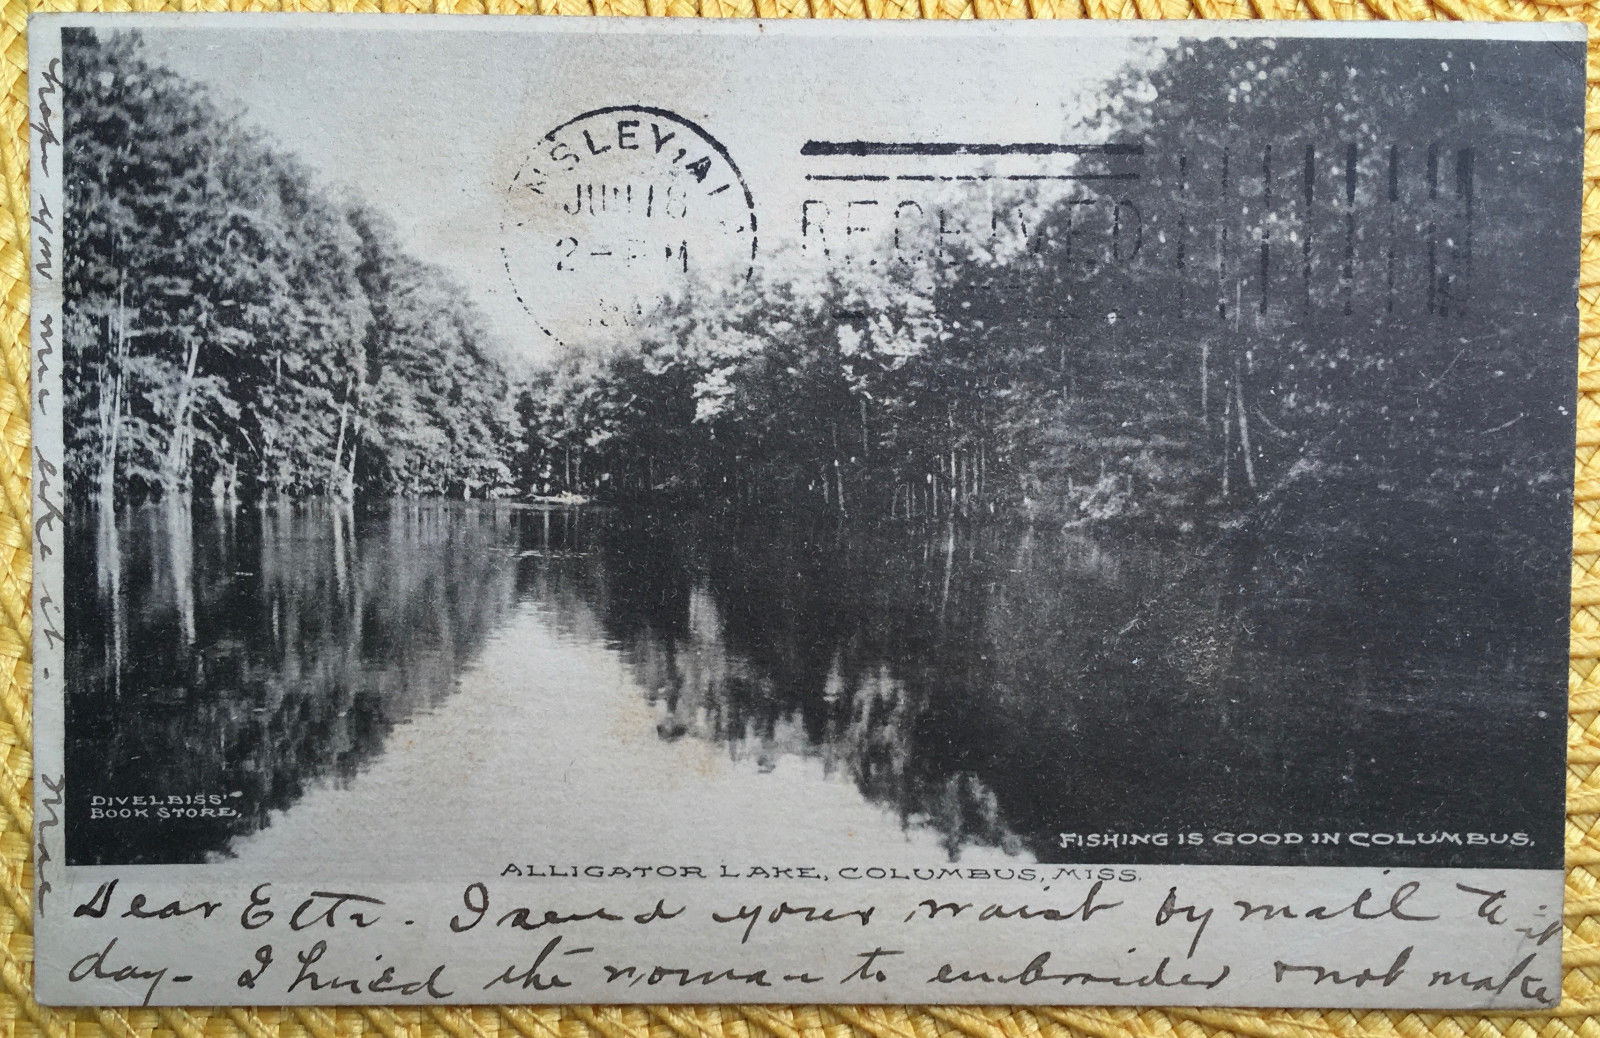 NSLEY, AL
JUN 18
2-PM
RECEIVED
DIVELBISS'
BOOK STORE,
FISHING IS GOOD IN COLUMBUS.
ALLIGATOR LAKE, COLUMBUS, MISS.
Dear Etta. I send your waist by mail to-
day - I hired the woman to embroider & not make
it
hope you will like it -